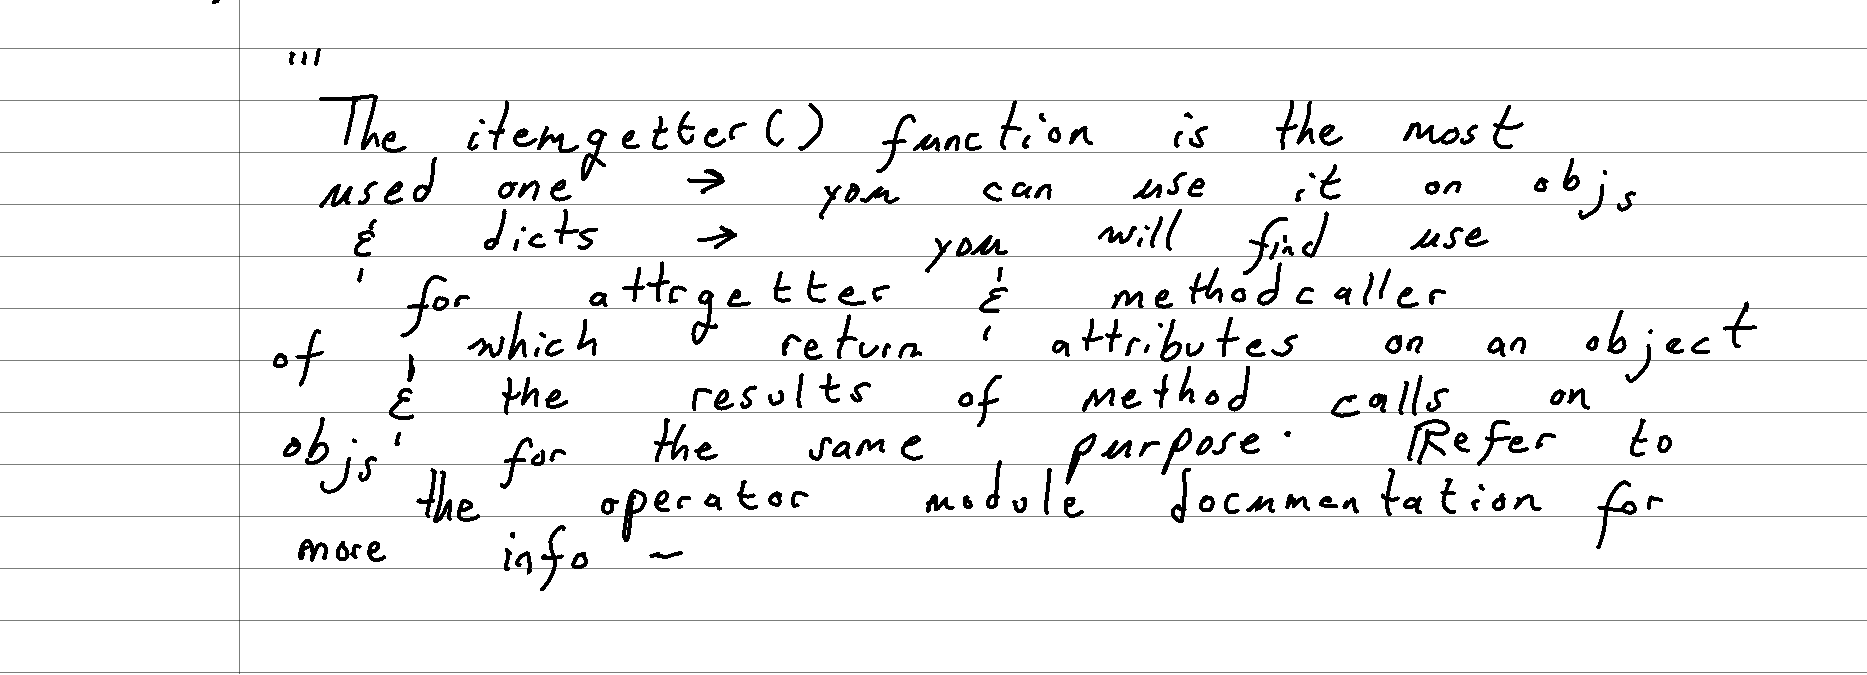 '''
The itemgetter() function is the most
used one → you can use it on objs
& dicts → you will find use
for attrgetter & methodcaller
of which return attributes on an object
& the results of method calls on
objs for the same purpose. Refer to
the operator module documentation for
more info ~